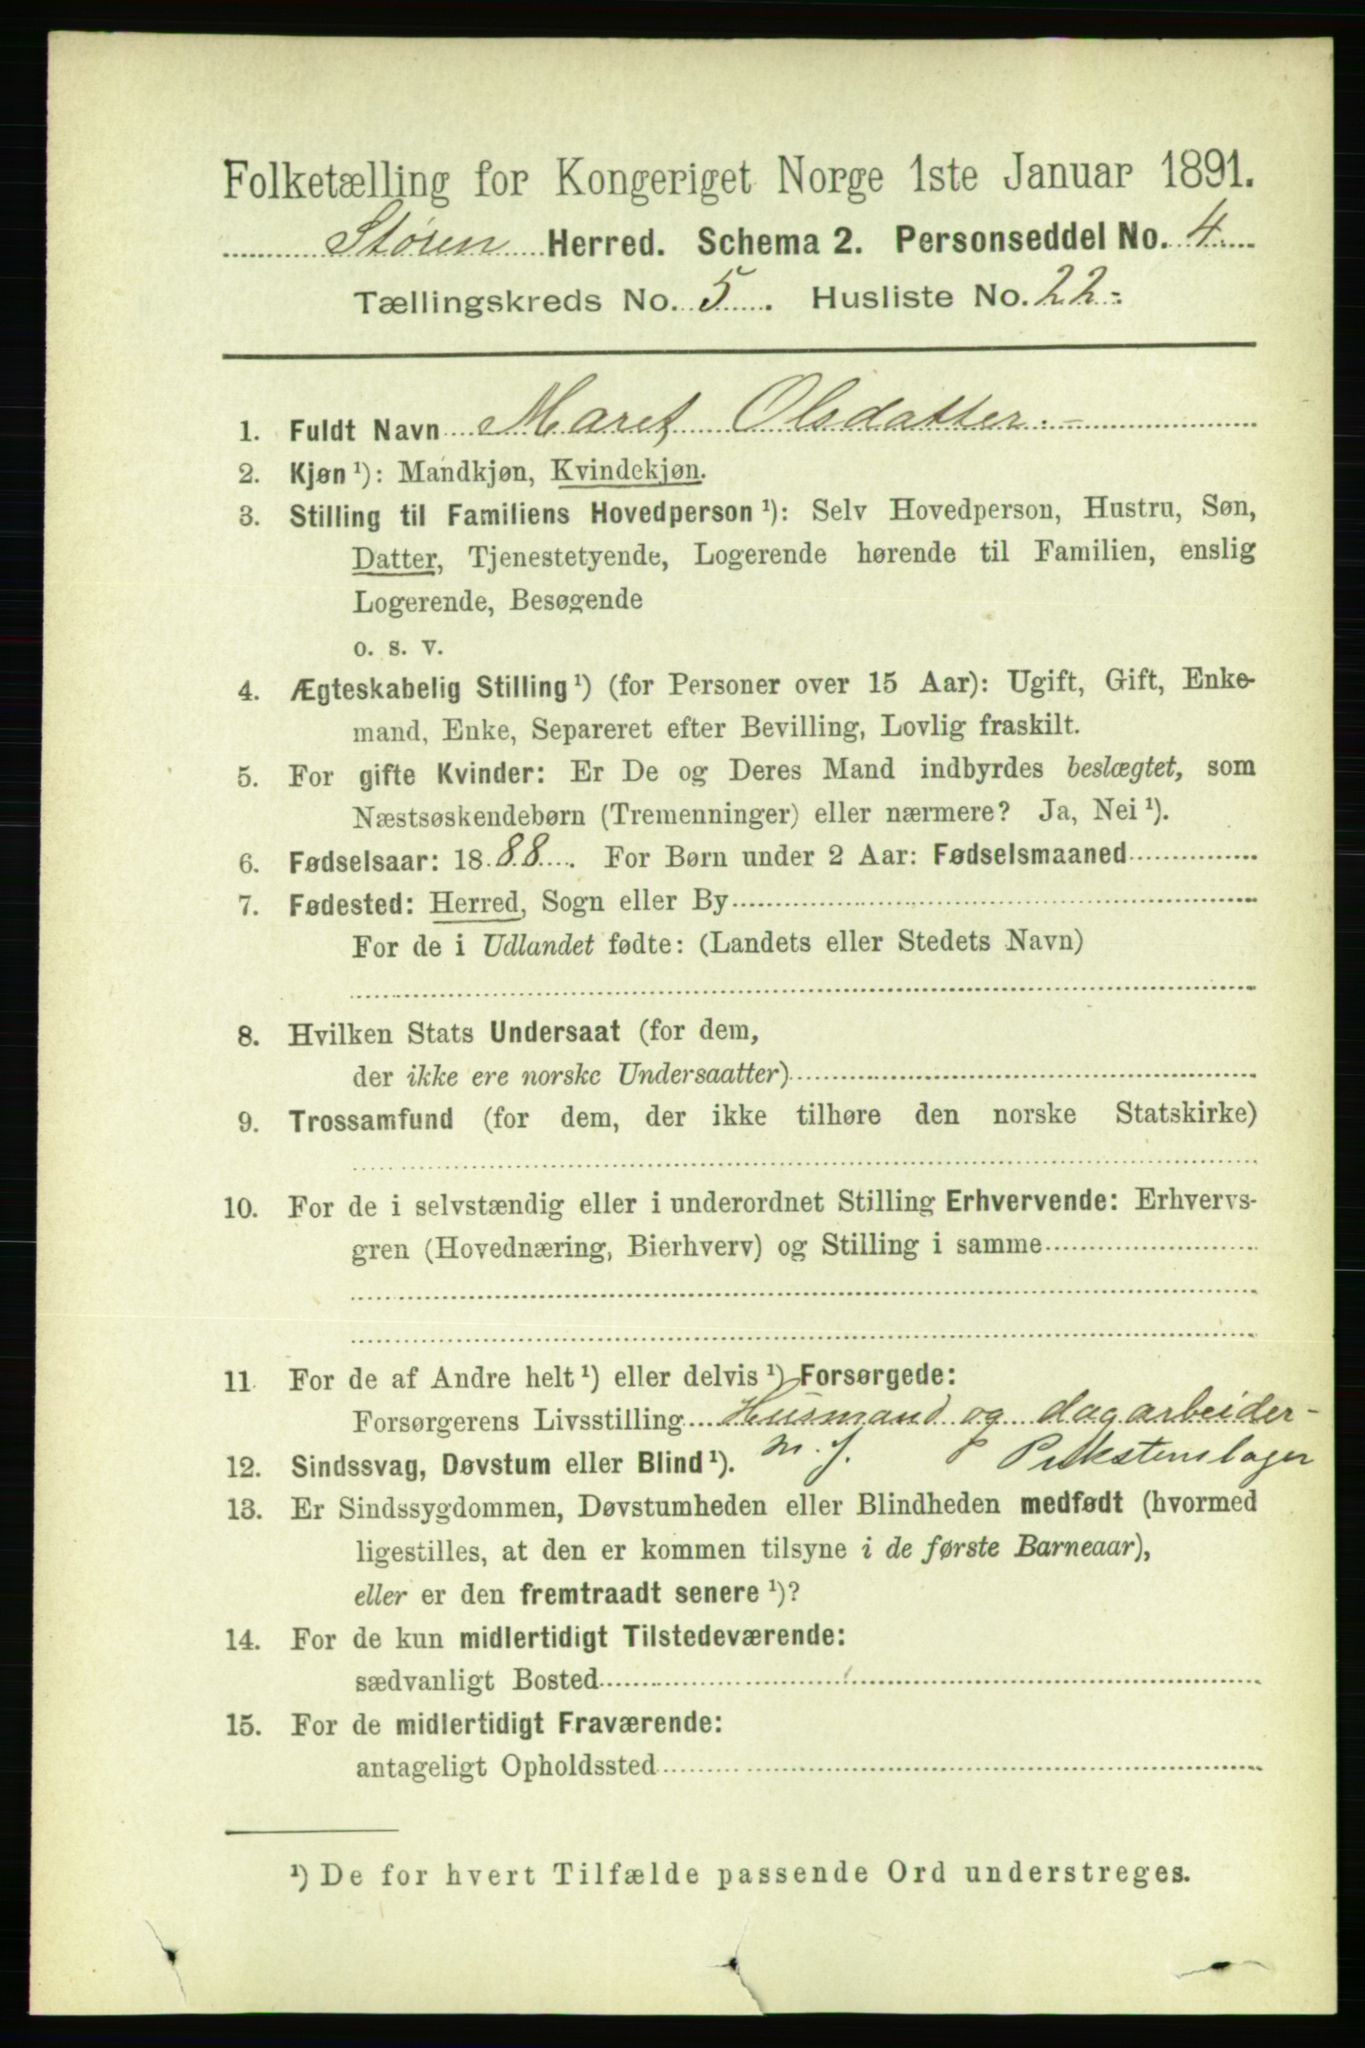 Folketælling for Kongeriget Norge 1ste Januar 1891.
Støren Herred. Schema 2. Personseddel No. 4
Tællingskreds No. 5. Husliste No. 22 -
1. Fuldt Navn Maret Olsdatter. -
2. Kjøn ¹): Mandkjøn, Kvindekjøn.
3. Stilling til Familiens Hovedperson ¹): Selv Hovedperson, Hustru, Søn,
Datter, Tjenestetyende, Logerende hørende til Familien, enslig
Logerende, Besøgende
o. s. v.
4. Ægteskabelig Stilling ¹) (for Personer over 15 Aar): Ugift, Gift, Enke-
mand, Enke, Separeret efter Bevilling, Lovlig fraskilt.
5. For gifte Kvinder: Er De og Deres Mand indbyrdes beslægtet, som
Næstsøskendebørn (Tremenninger) eller nærmere? Ja, Nei ¹).
6. Fødselsaar: 1888. For Børn under 2 Aar: Fødselsmaaned
7. Fødested: Herred, Sogn eller By
For de i Udlandet fødte: (Landets eller Stedets Navn)
8. Hvilken Stats Undersaat (for dem,
der ikke ere norske Undersaatter)
9. Trossamfund (for dem, der ikke tilhøre den norske Statskirke)
10. For de i selvstændig eller i underordnet Stilling Erhvervende: Erhvervs-
gren (Hovednæring, Bierhverv) og Stilling i samme
11 For de af Andre helt ¹) eller delvis ¹) Forsørgede:
Forsørgerens Livsstilling Husmand og dagarbeider -
m. J.
12. Sindssvag, Døvstum eller Blind ¹).
13. Er Sindssygdommen, Døvstumheden eller Blindheden medfødt (hvormed
ligestilles, at den er kommen tilsyne i de første Barneaar),
eller er den fremtraadt senere ¹)?
14. For de kun midlertidigt Tilstedeværende:
sædvanligt Bosted
15. For de midlertidigt Fraværende:
antageligt Opholdssted
¹) De for hvert Tilfælde passende Ord understreges.